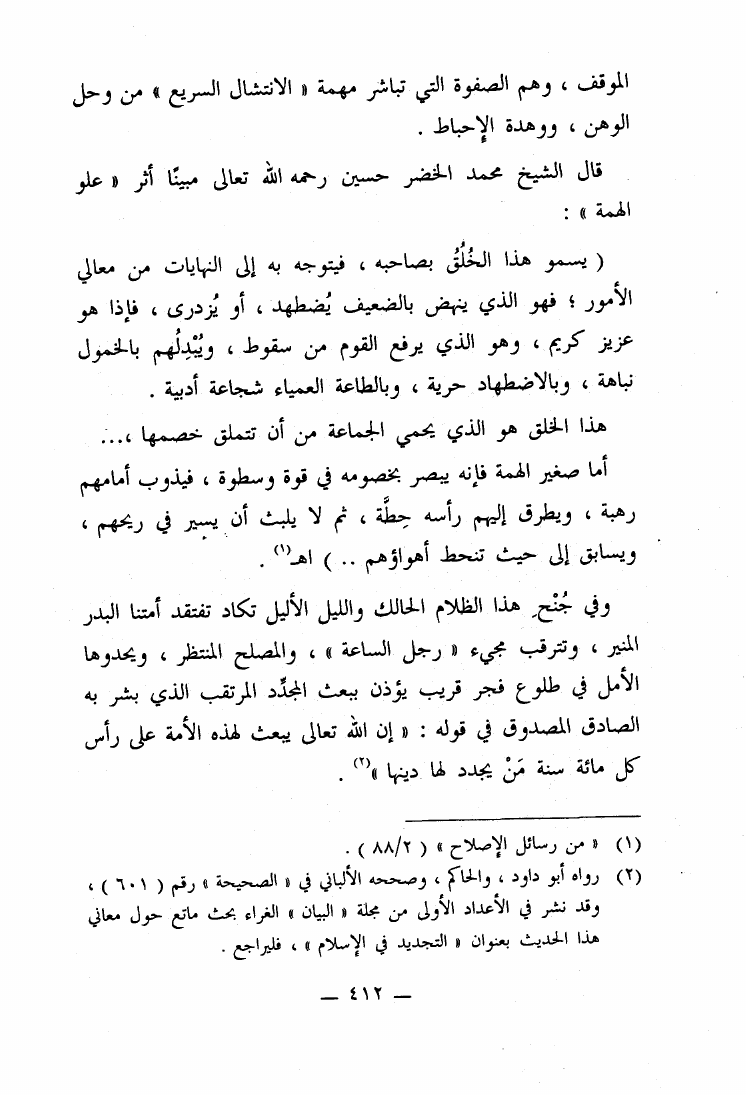 الموقف ، وهم الصفوة التي تباشر مهمة « الانتشال السريع » من وحل
الوهن ، ووهدة الإحباط .
قال الشيخ محمد الخضر حسين رحمه الله تعالى مبينًا أثر « علو
الهمة » :
( يسمو هذا الخُلُقُ بصاحبه ، فيتوجه به إلى النهايات من معالي
الأمور ؛ فهو الذي ينهض بالضعيف يُضطهد ، أو يُزدرى ، فإذا هو
عزيز كريم ، وهو الذي يرفع القوم من سقوط ، ويُبْدِلُهم بالخمول
نباهة ، وبالاضطهاد حرية ، وبالطاعة العمياء شجاعة أدبية .
هذا الخلق هو الذي يحمي الجماعة من أن تتملق خصمها ،...
أما صغير الهمة فإنه يبصر بخصومه في قوة وسطوة ، فيذوب أمامهم
رهبة ، ويطرق إليهم رأسه حِطَّة ، ثم لا يلبث أن يسير في ريحهم ،
ويسابق إلى حيث تنحط أهواؤهم .. ) اهـ(١) .
وفي جُنْحِ هذا الظلام الحالك والليل الأليل تكاد تفتقد أمتنا البدر
المنير ، وتترقب مجيء « رجل الساعة » ، والمصلح المنتظر ، ويحدوها
الأمل في طلوع فجر قريب يؤذن ببعث المجدِّد المرتقب الذي بشر به
الصادق المصدوق في قوله : « إن الله تعالى يبعث لهذه الأمة على رأس
كل مائة سنة مَنْ يجدد لها دينها »(٢) .
(١) « من رسائل الإصلاح » ( ٨٨/٢ ) .
(٢) رواه أبو داود ، والحاكم ، وصححه الألباني في « الصحيحة » رقم ( ٦٠١ ) ،
وقد نشر في الأعداد الأولى من مجلة « البيان » الغراء بحث ماتع حول معاني
هذا الحديث بعنوان « التجديد في الإسلام » ، فليراجع .
— ٤١٢ —